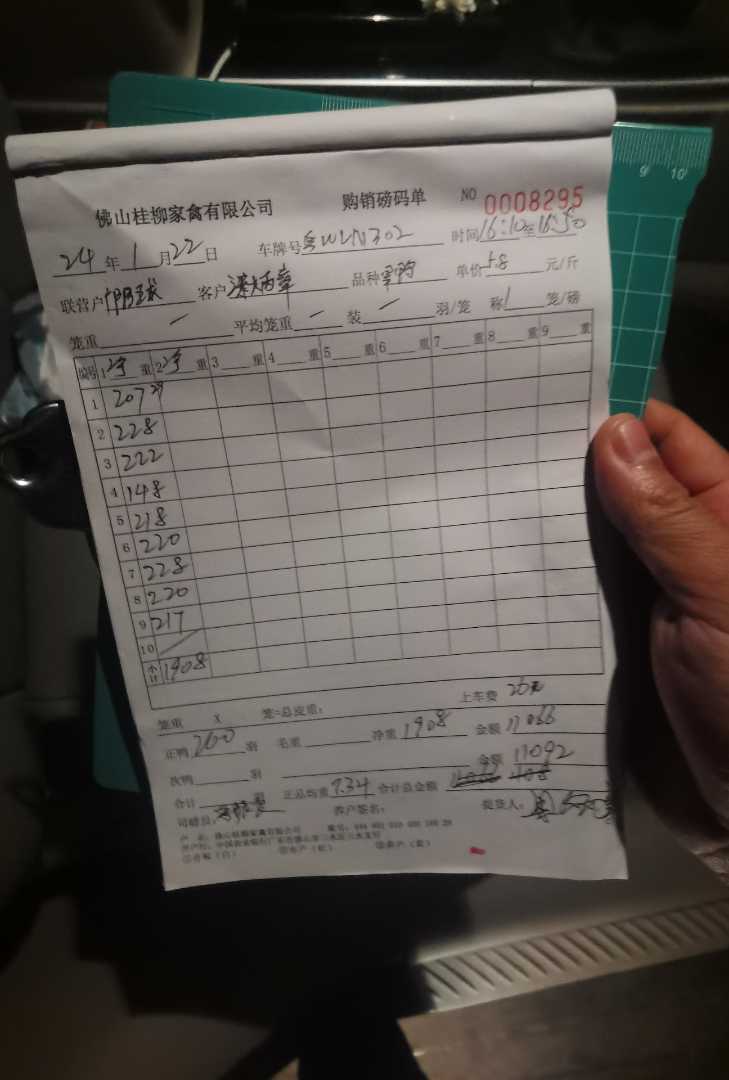 佛山桂柳家禽有限公司 购销磅码单 NO 0008295
24年1月22日 车牌号 WLN302 时间16:10至16:50
联营户 客户 品种 单价5.8元/斤
笼重 — 平均笼重 — 装 — 羽/笼 称 1 笼/磅
编号 1 重 2 重 3 重 4 重 5 重 6 重 7 重 8 重 9 重
1 207
2 228
3 222
4 148
5 218
6 220
7 228
8 220
9 217
10 /
小计 1908
笼重 X 笼=总皮重: 上车费 26元
正鸭 260 羽 毛重 净重 1908 金额 11066
次鸭 羽 金额 11092
合计 羽 正总均重 7.34 合计总金额
司磅员: 养户签名: 提货人:
户 名: 佛山桂柳家禽有限公司 账号: